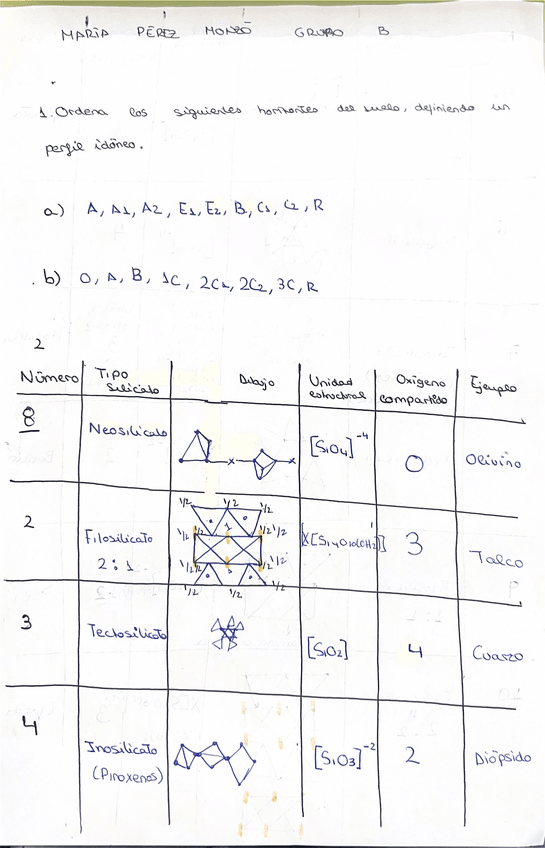 MARÍA PÉREZ MONZÓ GRUPO B
1. Ordena los siguientes horizontes del suelo, definiendo un
perfil idóneo.
a) A, A1, A2, E1, E2, B, C1, C2, R
b) O, A, B, 1C, 2C1, 2C2, 3C, R
2
Número Tipo silicato Dibujo Unidad estructural Oxígeno compartido Ejemplo
8 Neosilicato [SiO4]-4 0 Olivino
2 Filosilicato 2:1 X[Si4O10(OH2)] 3 Talco
1/2 1/2 1/2
1/2 1/2 1 1/2 1/2
1/2 1/2 1/2 1/2
1/2 1/2 1/2
3 Tectosilicato [SiO2] 4 Cuarzo
4 Inosilicato (Piroxenos) [SiO3]-2 2 Diópsido